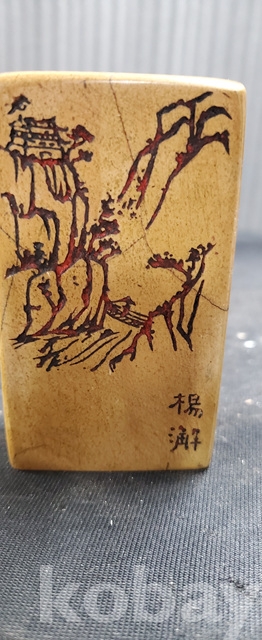 楊
澥
kobay